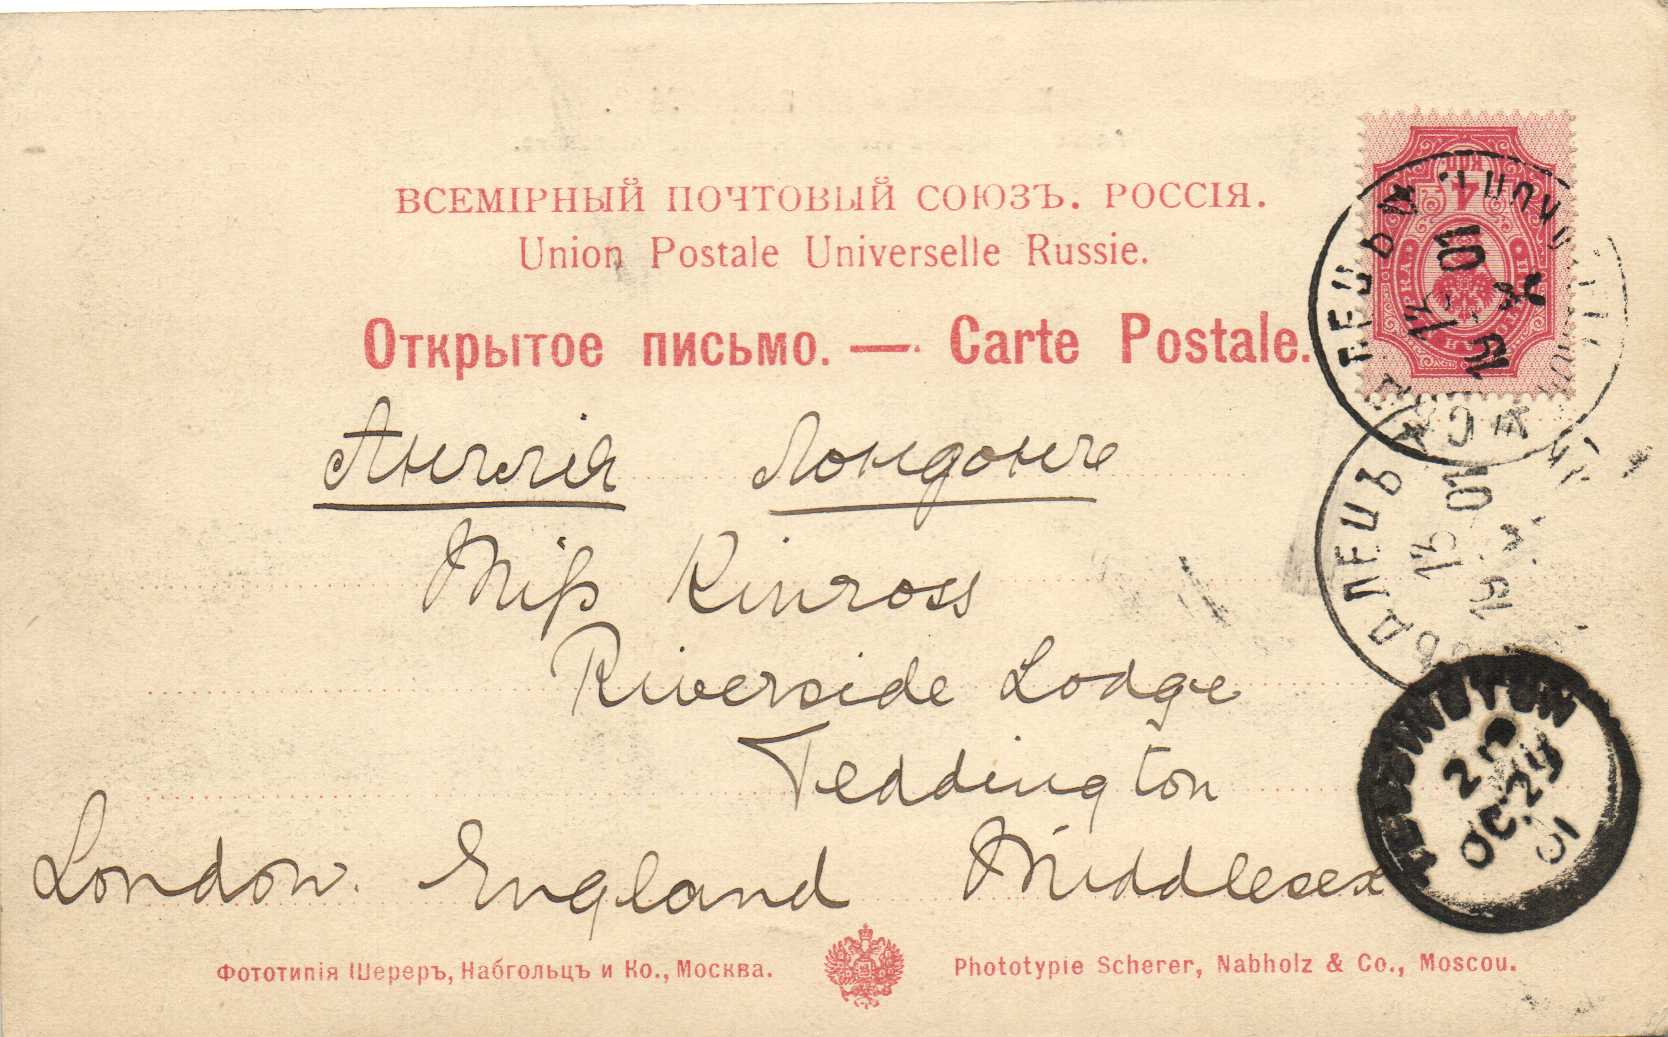 ВСЕМІРНЫЙ ПОЧТОВЫЙ СОЮЗЪ. РОССІЯ.
Union Postale Universelle Russie.
Открытое письмо. — Carte Postale.
4 КОП
ЕЛЕЦЪ
13 X 1901
Англія Лондонъ
Miss Kinross
Riverside Lodge
Teddington
London. England Middlesex
ЕЛЕЦЪ
13 X 1901
TEDDINGTON
OC 29
01
Фототипія Шереръ, Набгольцъ и Ко., Москва.
Phototypie Scherer, Nabholz & Co., Moscou.